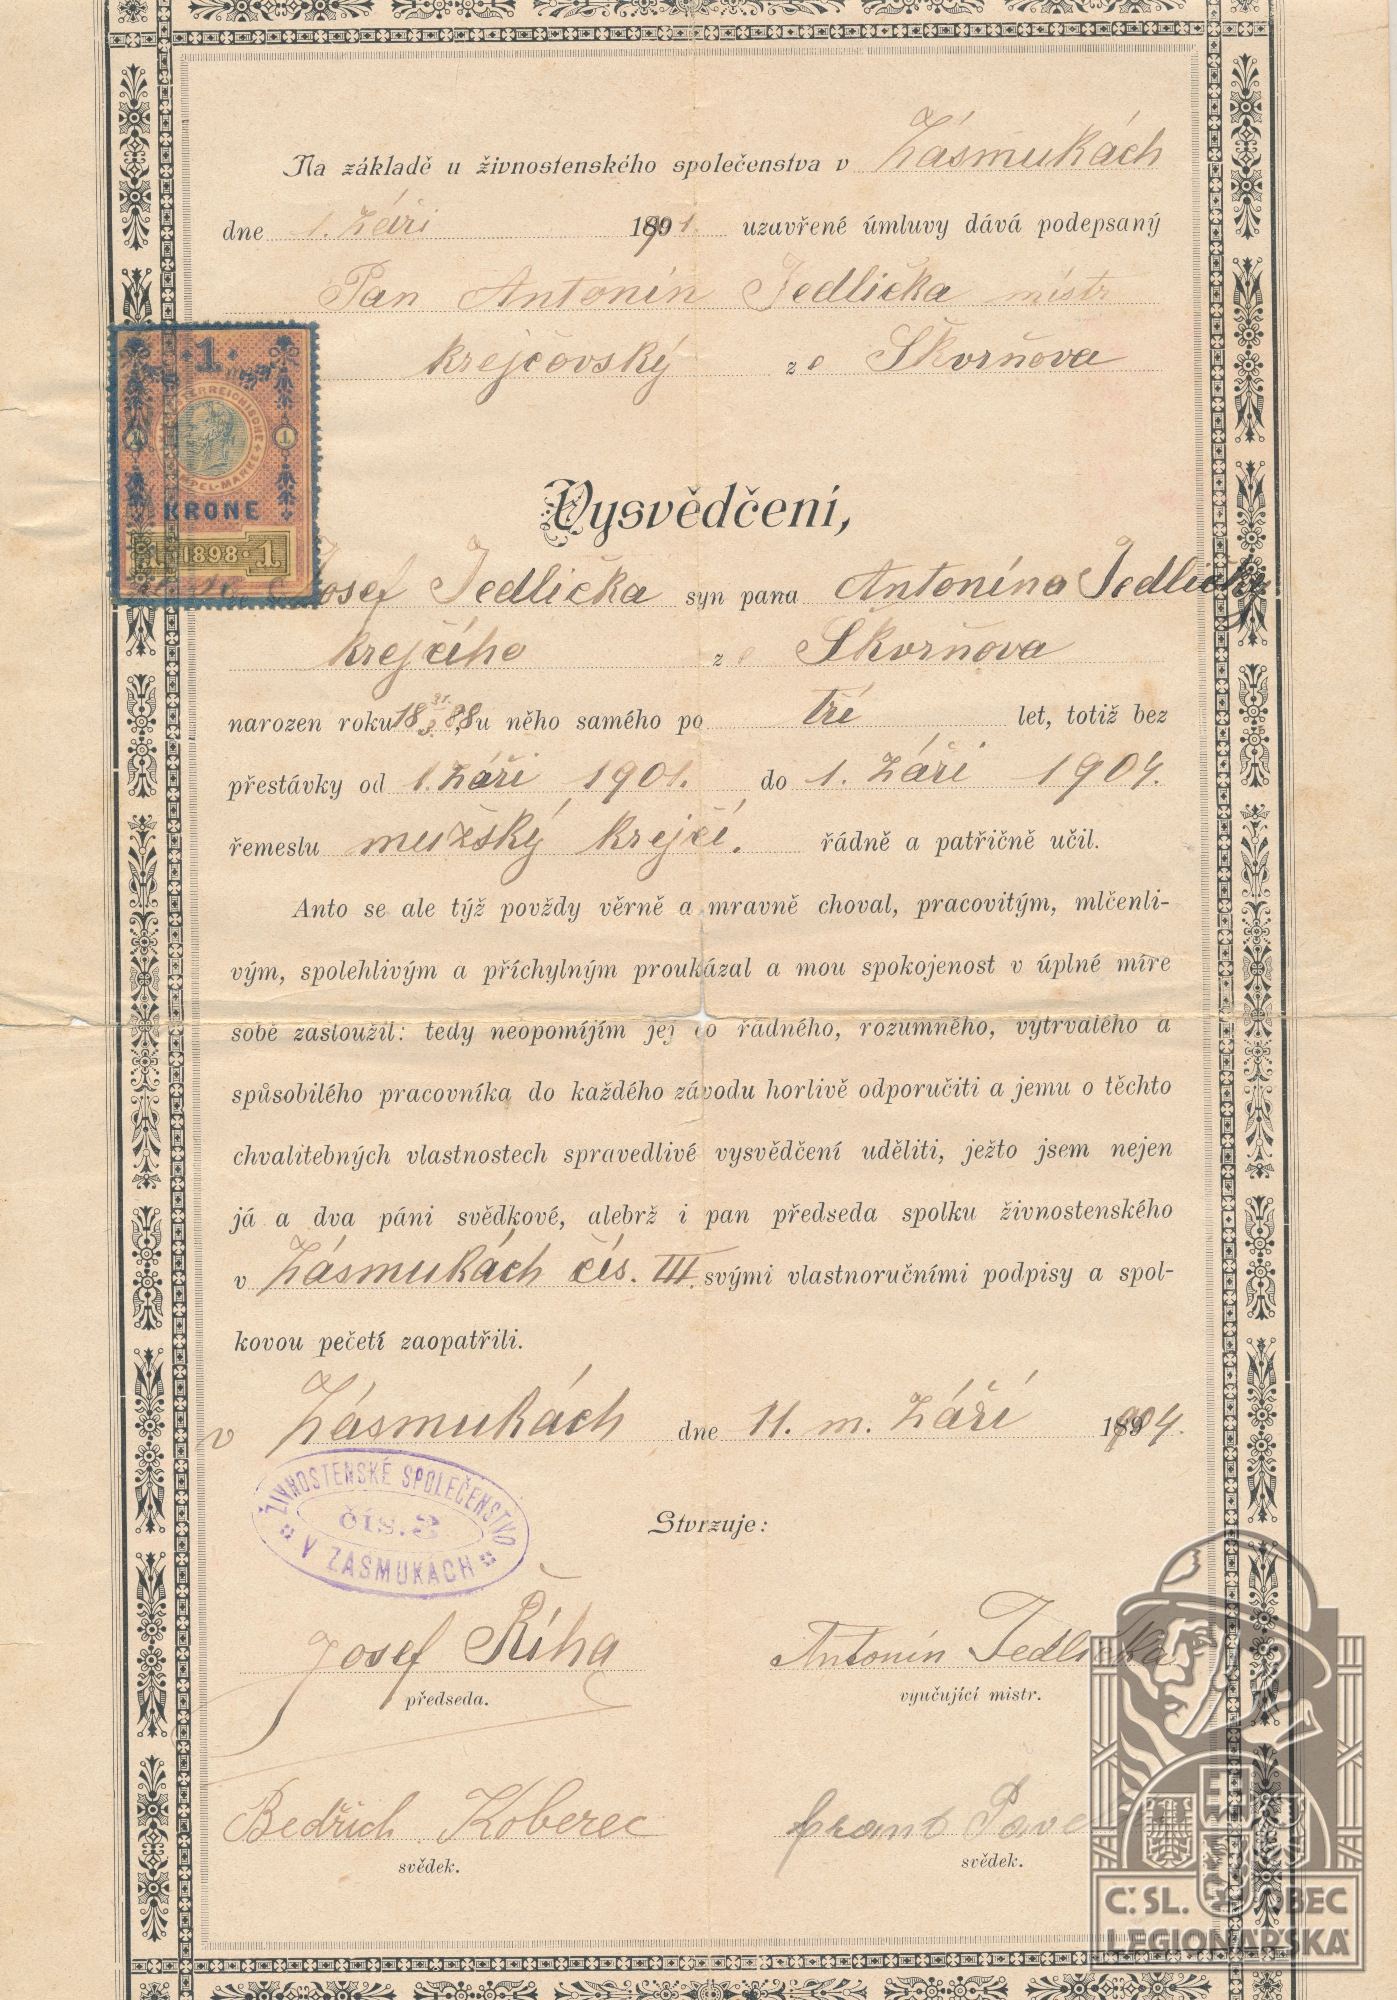 Na základě u živnostenského společenstva v Zásmukách
dne 1. Září 1901. uzavřené úmluvy dává podepsaný
Pan Antonín Jedlička mistr
krejčovský ze Skvrňova
1
ÖSTERREICHISCHE
STEMPEL-MARKE
1 1
KRONE
1 1898 1
Vysvědčení,
Josef Jedlička syn pana Antonína Jedličky
krejčího ze Skvrňova
narozen roku 18 31/3. 88, u něho samého po tři let, totiž bez
přestávky od 1. Září 1901. do 1. Září 1904.
řemeslu mužský krejčí. řádně a patřičně učil.
Anto se ale týž povždy věrně a mravně choval, pracovitým, mlčenli-
vým, spolehlivým a příchylným proukázal a mou spokojenost v úplné míre
sobě zasloužil: tedy neopomíjím jej co řádného, rozumného, vytrvalého a
spůsobilého pracovníka do každého závodu horlivě odporučiti a jemu o těchto
chvalitebných vlastnostech spravedlivé vysvědčení uděliti, ježto jsem nejen
já a dva páni svědkové, alebrž i pan předseda spolku živnostenského
v Zásmukách čís. III. svými vlastnoručními podpisy a spol-
kovou pečetí zaopatřili.
v Zásmukách dne 11. m. Září 1904.
ŽIVNOSTENSKÉ SPOLEČENSTVO
čís. 3
V ZÁSMUKÁCH
Stvrzuje:
Josef Říha
předseda.
Antonín Jedlička
vyučující mistr.
Bedřich Koberec
svědek.
svědek.
Č. SL. OBEC
LEGIONÁŘSKÁ